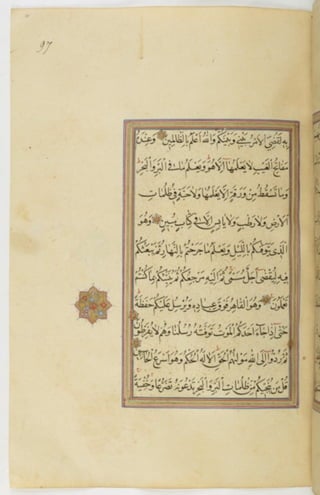 97
به لقضى الامر بينى وبينكم والله اعلم بالظالمين وعنده
مفاتح الغيب لا يعلمها الا هو ويعلم ما فى البر والبحر
وما تسقط من ورقة الا يعلمها ولا حبة فى ظلمات
الارض ولا رطب ولا يابس الا فى كتاب مبين وهو
الذى يتوفيكم بالليل ويعلم ما جرحتم بالنهار ثم يبعثكم
فيه ليقضى اجل مسمى ثم اليه مرجعكم ثم ينبئكم بما كنتم
تعملون وهو القاهر فوق عباده ويرسل عليكم حفظة
حتى اذا جاء احدكم الموت توفته رسلنا وهم لا يفرطون
ثم ردوا الى الله موليهم الحق الا له الحكم وهو اسرع الحاسبين
قل من ينجيكم من ظلمات البر والبحر تدعونه تضرعا وخفية